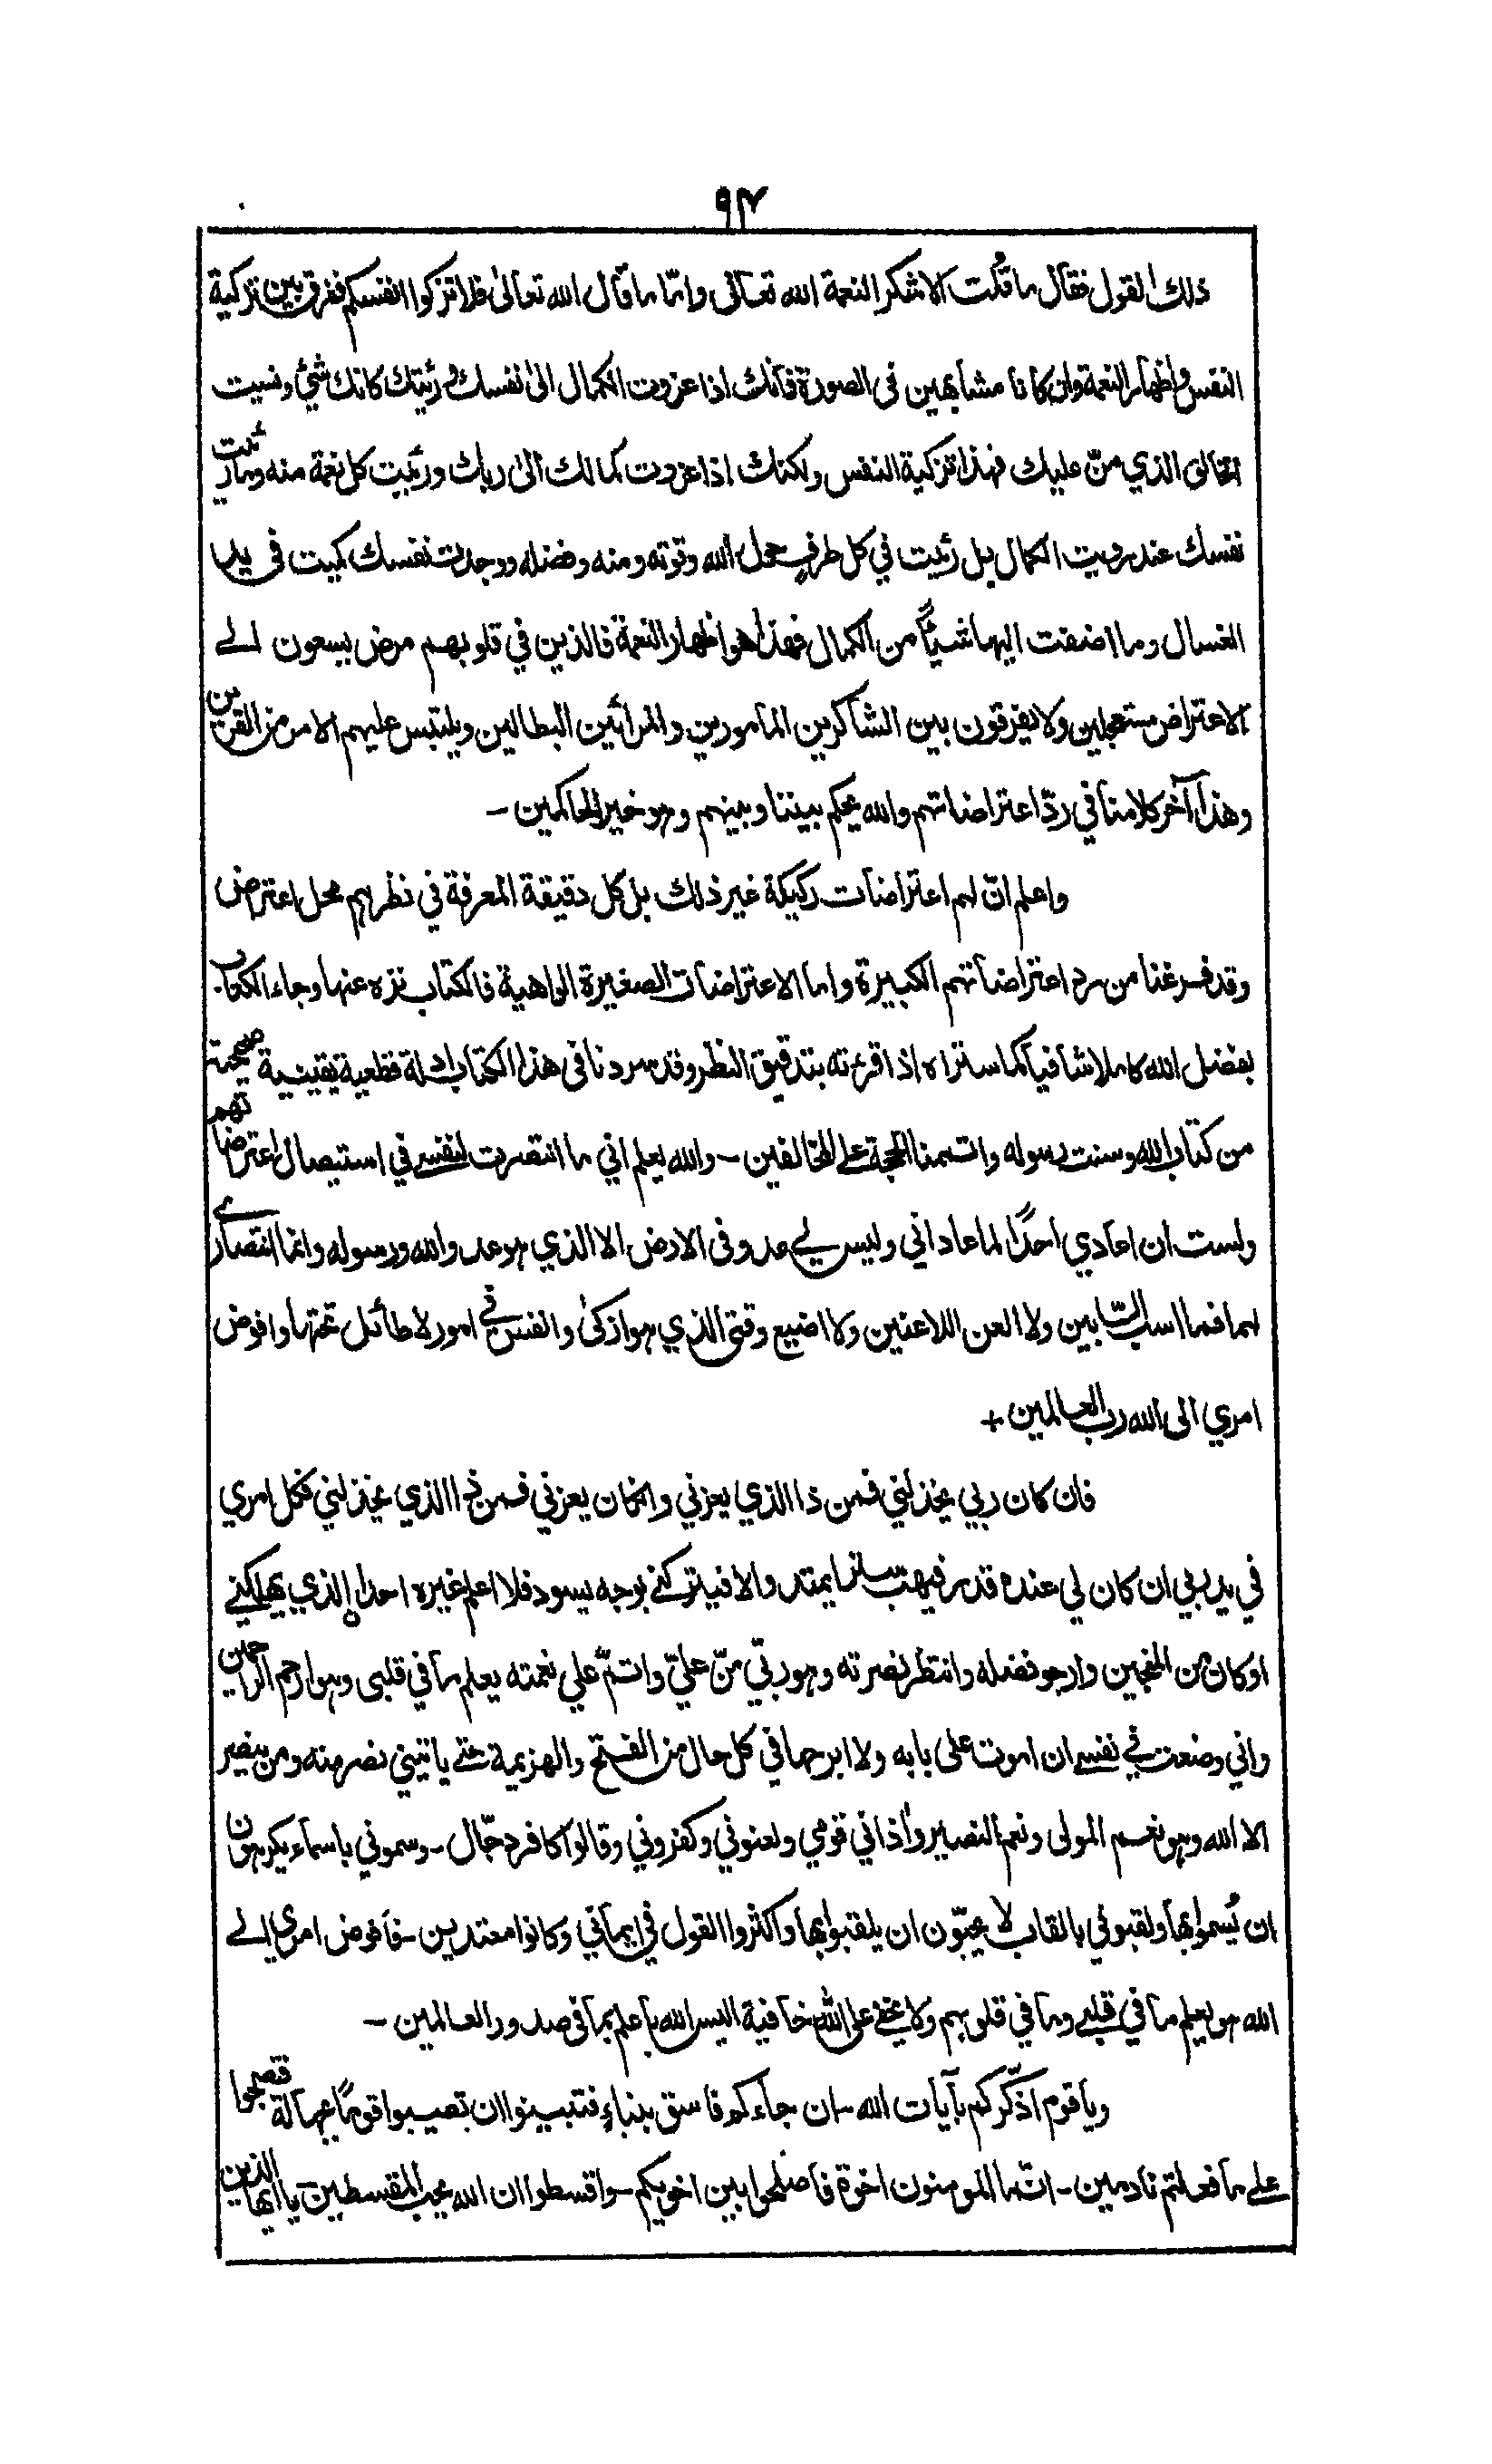 ٩٢
ذلك القول فقال ما قُلت الا شكر النعمة الله تعالى واما ما قال الله تعالىٰ فلا تزكوا انفسكم ففرق بين تزكية
النفس واظهار النعمة وان كانا مشابهين فى الصورة فانك اذا عزوت الكمال الىٰ نفسك ورئيتك كانك شئ ونسيت
الخالق الذي منّ عليك فهذا تزكية النفس ولكنك اذا عزوت كمالك الىٰ ربك ورئيت كل نعمة منه وما رئيت
نفسك عند رويت الكمال بل رئيت في كل طرفٍ حول الله وقوته ومنه وفضله ووجدت نفسك كميت فى يد
الغسال وما اضفت اليها شيئًا من الكمال فهذا هو اظهار النعمة فالذين في قلوبهم مرض يسعون الے
الاعتراض مستعجلين ولا يفرقون بين الشاكرين المأمورين والمرائين البطالين ويلتبس عليهم الامر من القرين
وهذا آخر كلامنا في ردّ اعتراضاتهم والله يحكم بيننا وبينهم وهو خير الحاكمين ـ
واعلم انّ لهم اعتراضات ركيكة غير ذلك بل كل دقيقة المعرفة في نظرهم محل اعتراض
وقد فرغنا من رد اعتراضاتهم الكبيرة واما الاعتراضات الصغيرة الواهية فالكتاب نزه عنها وجاء الكتاب
بفضل الله كاملا شافيا كما ستراه اذا قرءته بتدقيق النظر وقد سردنا فى هذا الكتاب ادلة قطعية يقينية صحيحة
من كتاب الله وسنت رسوله واتممنا الحجة على المخالفين ـ والله يعلم اني ما انتصرت لنفسے في استيصال اعتراضاتهم
ولست ان اعادي احدًا لما عاداني وليس لے عدو فى الارض الا الذي هو عدو الله ورسوله وانما انتصارے
لهما فما اسب السّابين ولا العن اللاعنين ولا اضيع وقتى الذي هو ازكىٰ وانفس في امور لا طائل تحتها وافوض
امري الى الله رب العالمين +
فان كان ربي يخذلني فمن ذا الذي يعزني وان كان يعزني فمن ذا الذي يخذلني فكل امري
في يد ربي ان كان لي عنده قدر فيهب سترا يمتد والا فيتركنے بوجه يسود فلا اعلم غيره احدا الذي يهلكنے
او كان من المنجين وارجو فضله وانتظر نصرته وهو ربّي منّ عليّ واتمّ علي نعمته يعلم ما في قلبى وهو ارحم الراحمين
واني وضعت في نفسے ان اموت على بابه ولا ابرحها في كل حال من الفتح والهزيمة حتے ياتيني نصر منه ومن ينصر
الا الله وهو نعم المولى ونعم النصير واٰذاني قومي ولعنوني وكفروني وقالوا كافر دجّال ـ وسموني باسماء يكرهون
ان يُسموا بها ولقبوني بالقاب لا يحبّون ان يلقبوا بها واكثروا القول في ايماني وكانوا معتدين ـ فافوض امري الے
الله هو يعلم ما في قلبے وما في قلوبهم ولا يخفے على الله خافية اليس الله باعلم بما فى صدور العالمين ـ
ويا قوم اذكّركم بآيات الله ـ ان جاءكم فاسق بنباءٍ فتبينوا ان تصيبوا قومًا بجهالة فتصبحوا
علے ما فعلتم نادمين ـ انّما المومنون اخوة فاصلحوا بين اخويكم ـ واقسطوا ان الله يحب المقسطين ـ يا ايها الذين